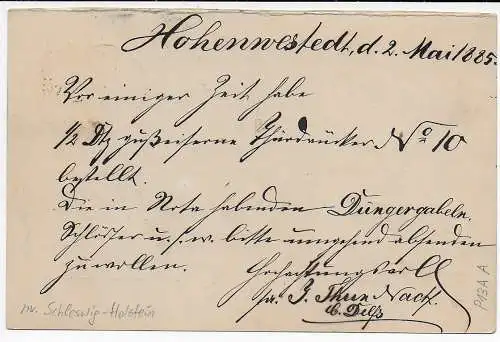 Hohenwestedt, d. 2. Mai 1885.
Vor einiger Zeit habe
1/2 Dtz gußeiserne Thürdrücker No 10
bestellt.
Die in Nota habenden Düngergabeln,
Schlösser u. s. w. bitte umgehend absenden
zu wollen.
Hochachtungsvoll
J. Thun Nachf.
nr. Schleswig-Holstein
P13A A